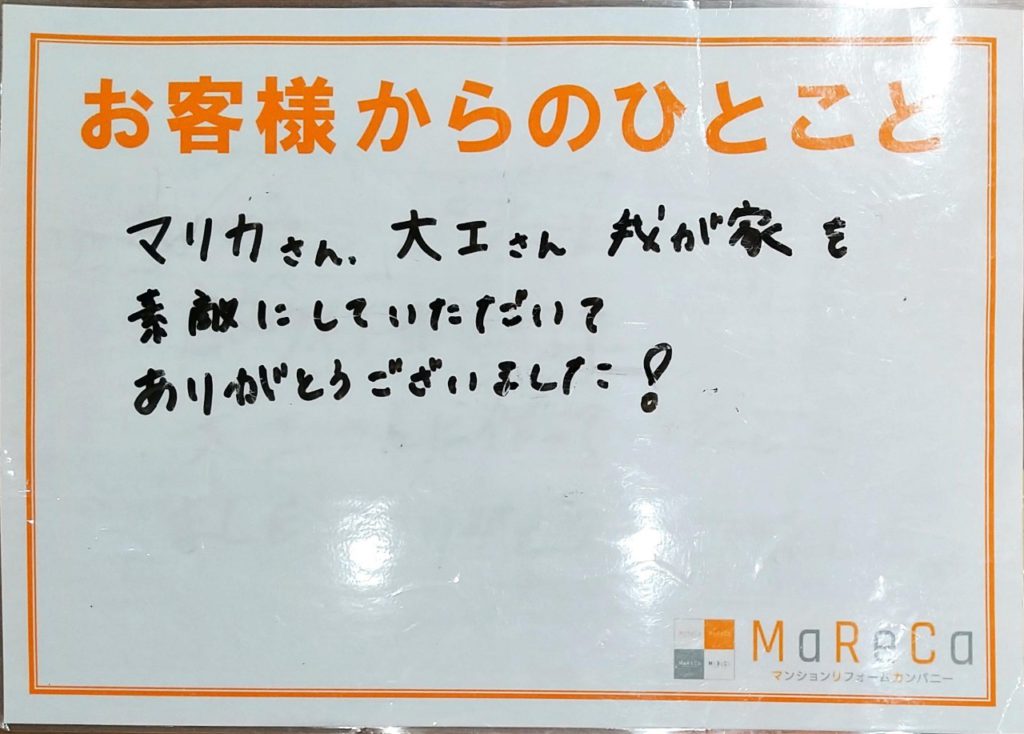 お客様からのひとこと
マリカさん、大工さん 我が家を
素敵にしていただいて
ありがとうございました!
MaReCa
マンションリフォームカンパニー